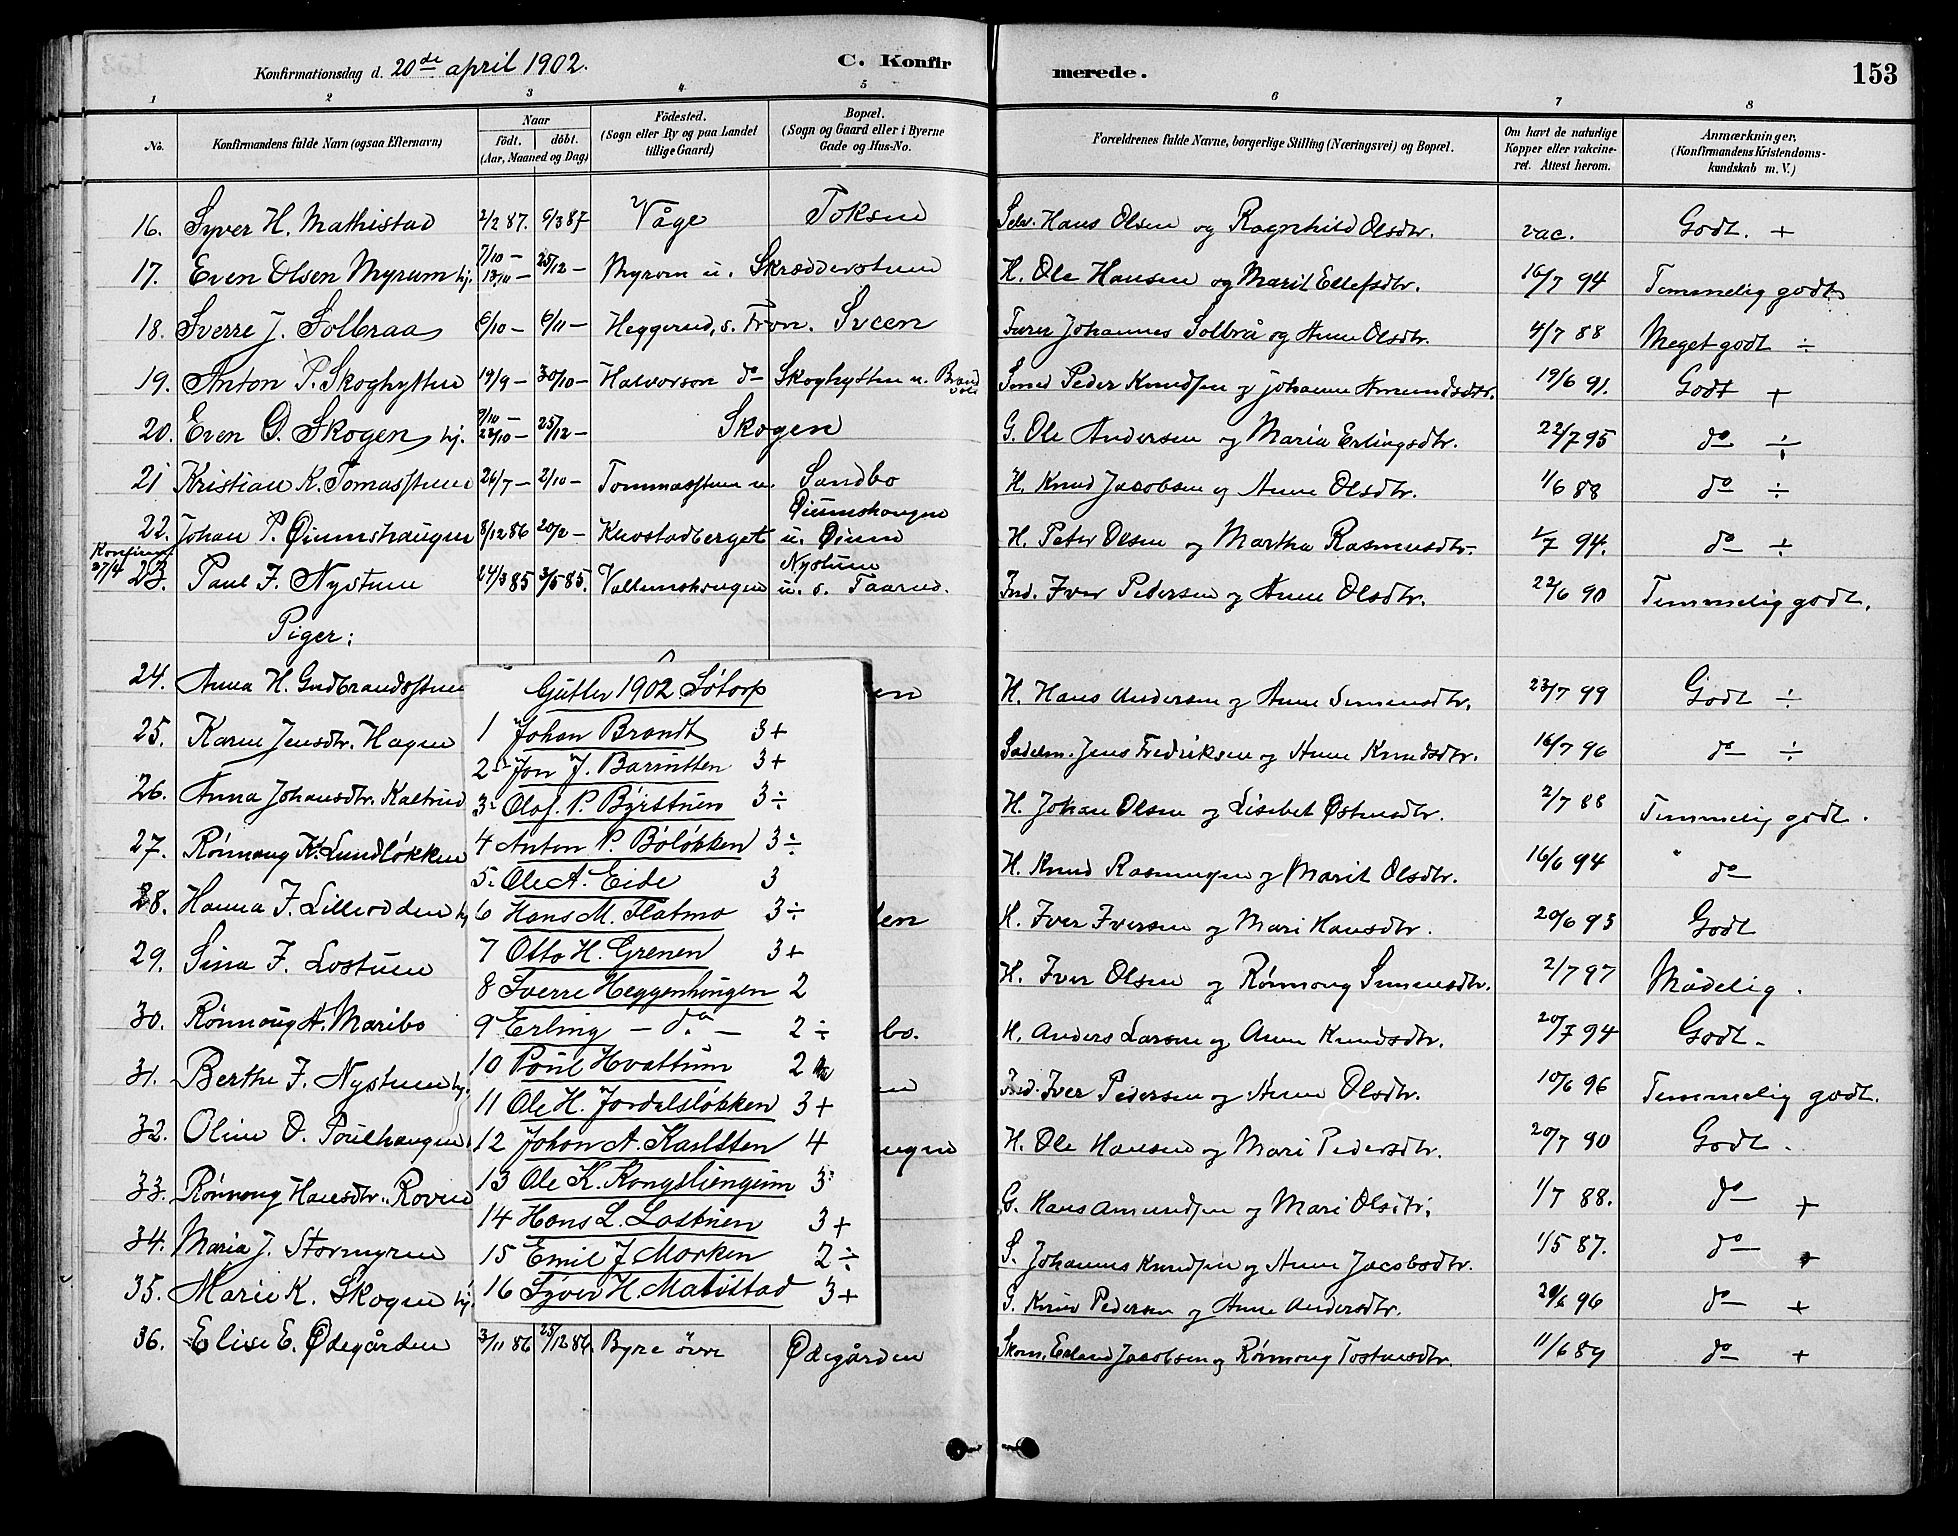 Konfirmationsdag d. 20de april 1902.
C. Konfirmerede.
153
1 2 3 4 5 6 7 8
No.
Konfirmandens fulde Navn (ogsaa Efternavn)
Naar
født. døbt.
(Aar, Maaned og Dag)
Fødested.
(Sogn eller By og paa Landet
tillige Gaard)
Bopæl.
(Sogn og Gaard eller i Byerne
Gade og Hus-No.
Forældrenes fulde Navne, borgerlige Stilling (Næringsvei) og Bopæl.
Om havt de naturlige
Kopper eller vakcine-
ret. Attest herom.
Anmærkninger,
(Konfirmandens Kristendoms-
kundskab m. V.)
16. Syver H. Mathistad 2/2 87. 6/3 87 Våge Toksen Selv. Hans Olsen og Ragnhild Olsdtr. vac. Godt. +
17. Even Olsen Myrum hj. 7/10 — 13/10 — 25/12 — Myrom u. Skrædderstuen H. Ole Hansen og Marit Ellefsdtr. 16/7 94 Temmelig godt
18. Sverre J. Solbraa 6/10 — 6/11 — Heggerud, s. Fron. Sveen Furer Johannes Solbrå og Anne Olsdtr. 4/7 88 Meget godt ÷
19. Anton P. Skoghytten 19/9 — 30/10 — Halvorson do Skoghytten u. Brandvoll Smed Peder Knudsen og Johanne Amundsdtr. 19/6 91. Godt +
20. Even O. Skogen hj. 9/10 — 22/10 — 25/12 — Skogen G. Ole Andersen og Maria Erlingsdtr. 22/7 95 do ÷
21 Kristian K. Tomasstuen 26/7 — 2/10 — Tommasstuen u. Sandbo H. Knud Jacobsen og Anne Olsdtr. 1/6 88 do ÷
22. Johan P. Øiumshaugen 8/12 86 20/2 — Knostadberget Øiumshaugen u. Øium H. Peter Olsen og Martha Rasmusdtr. 1/7 94. do ÷
Konfirm. 27/4 23. Paul I. Nystuen 24/3 85 3/5 85. Vollumshaugen Nystuen u. s. Taarud. Ind. Iver Pedersen og Anne Olsdtr. 22/6 90 Temmelig godt.
Piger:
24. Anna H. Gudbrandsstuen H. Hans Andersen og Anne Simensdtr. 23/7 99 Godt ÷
25. Karen Jensdtr. Hagen Sadelm. Jens Fredriksen og Anne Knudsdtr. 16/7 96 do ÷
26. Anna Johansdtr. Kaltrud H. Johan Olsen og Lisebet Østensdtr. 2/7 88 Temmelig godt.
27. Rønnaug K. Lundløkken H. Knud Rasmussen og Marit Olsdtr. 16/6 94 do
28. Hanna I. Lillerødden hj. H. Iver Iversen og Mari Hansdtr. 20/6 93 Godt
29. Sina I. Lostuen H. Iver Olsen og Rønnaug Simensdtr. 2/7 97 Mådelig.
30. Rønnaug A. Maribo H. Anders Larsen og Anne Knudsdtr. 20/7 94 Godt.
31. Berthe I. Nystuen hj. Ind. Iver Pedersen og Anne Olsdtr. 10/6 96 Temmelig godt.
32. Oline O. Poulhaugen H. Ole Hansen og Mari Pedersdtr. 20/7 90 Godt.
33. Rønnaug Hansdtr. Roven G. Hans Amundsen og Mari Olsdtr. 1/7 88. do +
34. Maria J. Stormyren S. Johannes Knudsen og Anne Jacobsdtr. 1/5 87. do +
35. Marie K. Skogen hj. S. Knud Pedersen og Anne Andersdtr. 20/6 96 do +
36. Elise E. Ødegården 3/11 86 25/12 86. Byre övre Ødegården Skom. Erland Jacobsen og Rønnaug Tostensdtr. 11/6 89 do +
Gutter 1902 Sötorp
1 Johan Brandt 3+
2 Jon J. Barlitten 3+
3 Olaf P. Býrstuen 3÷
4 Anton P. Böløkken 3÷
5. Ole A. Eide 3
6 Hans M. Flatmo 3÷
7 Otto H. Grenen 3+
8 Sverre Heggenhougen 2
9 Erling — do — 2÷
10 Poul Hvattum 2
11 Ole H. Jordalsløkken 3+
12 Johan A. Karlsten 4
13 Ole K. Kongsliengum 3
14 Hans L. Lostuen 3+
15 Emil J Morken 2÷
16 Syver H. Matistad 3+